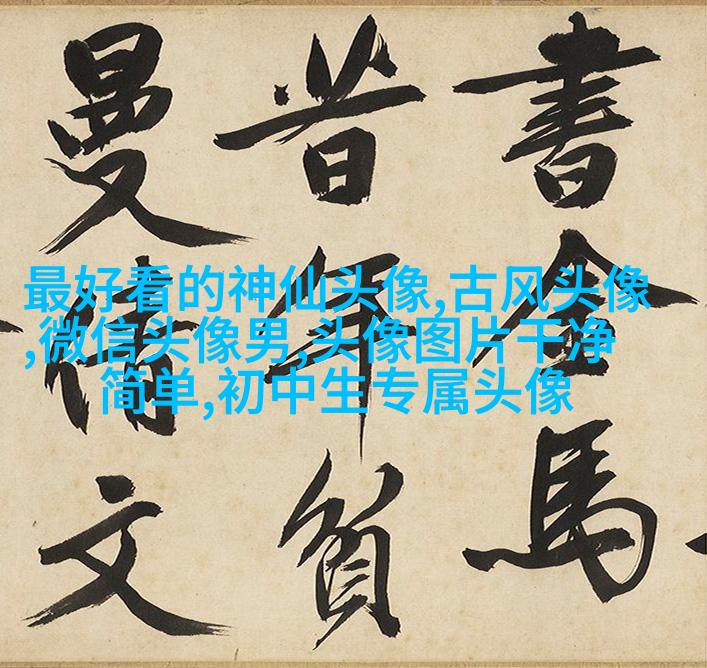 書金馬
昔年貧
曼倩文
最好看的神仙头像,古风头像
,微信头像男,头像图片干净
简单,初中生专属头像